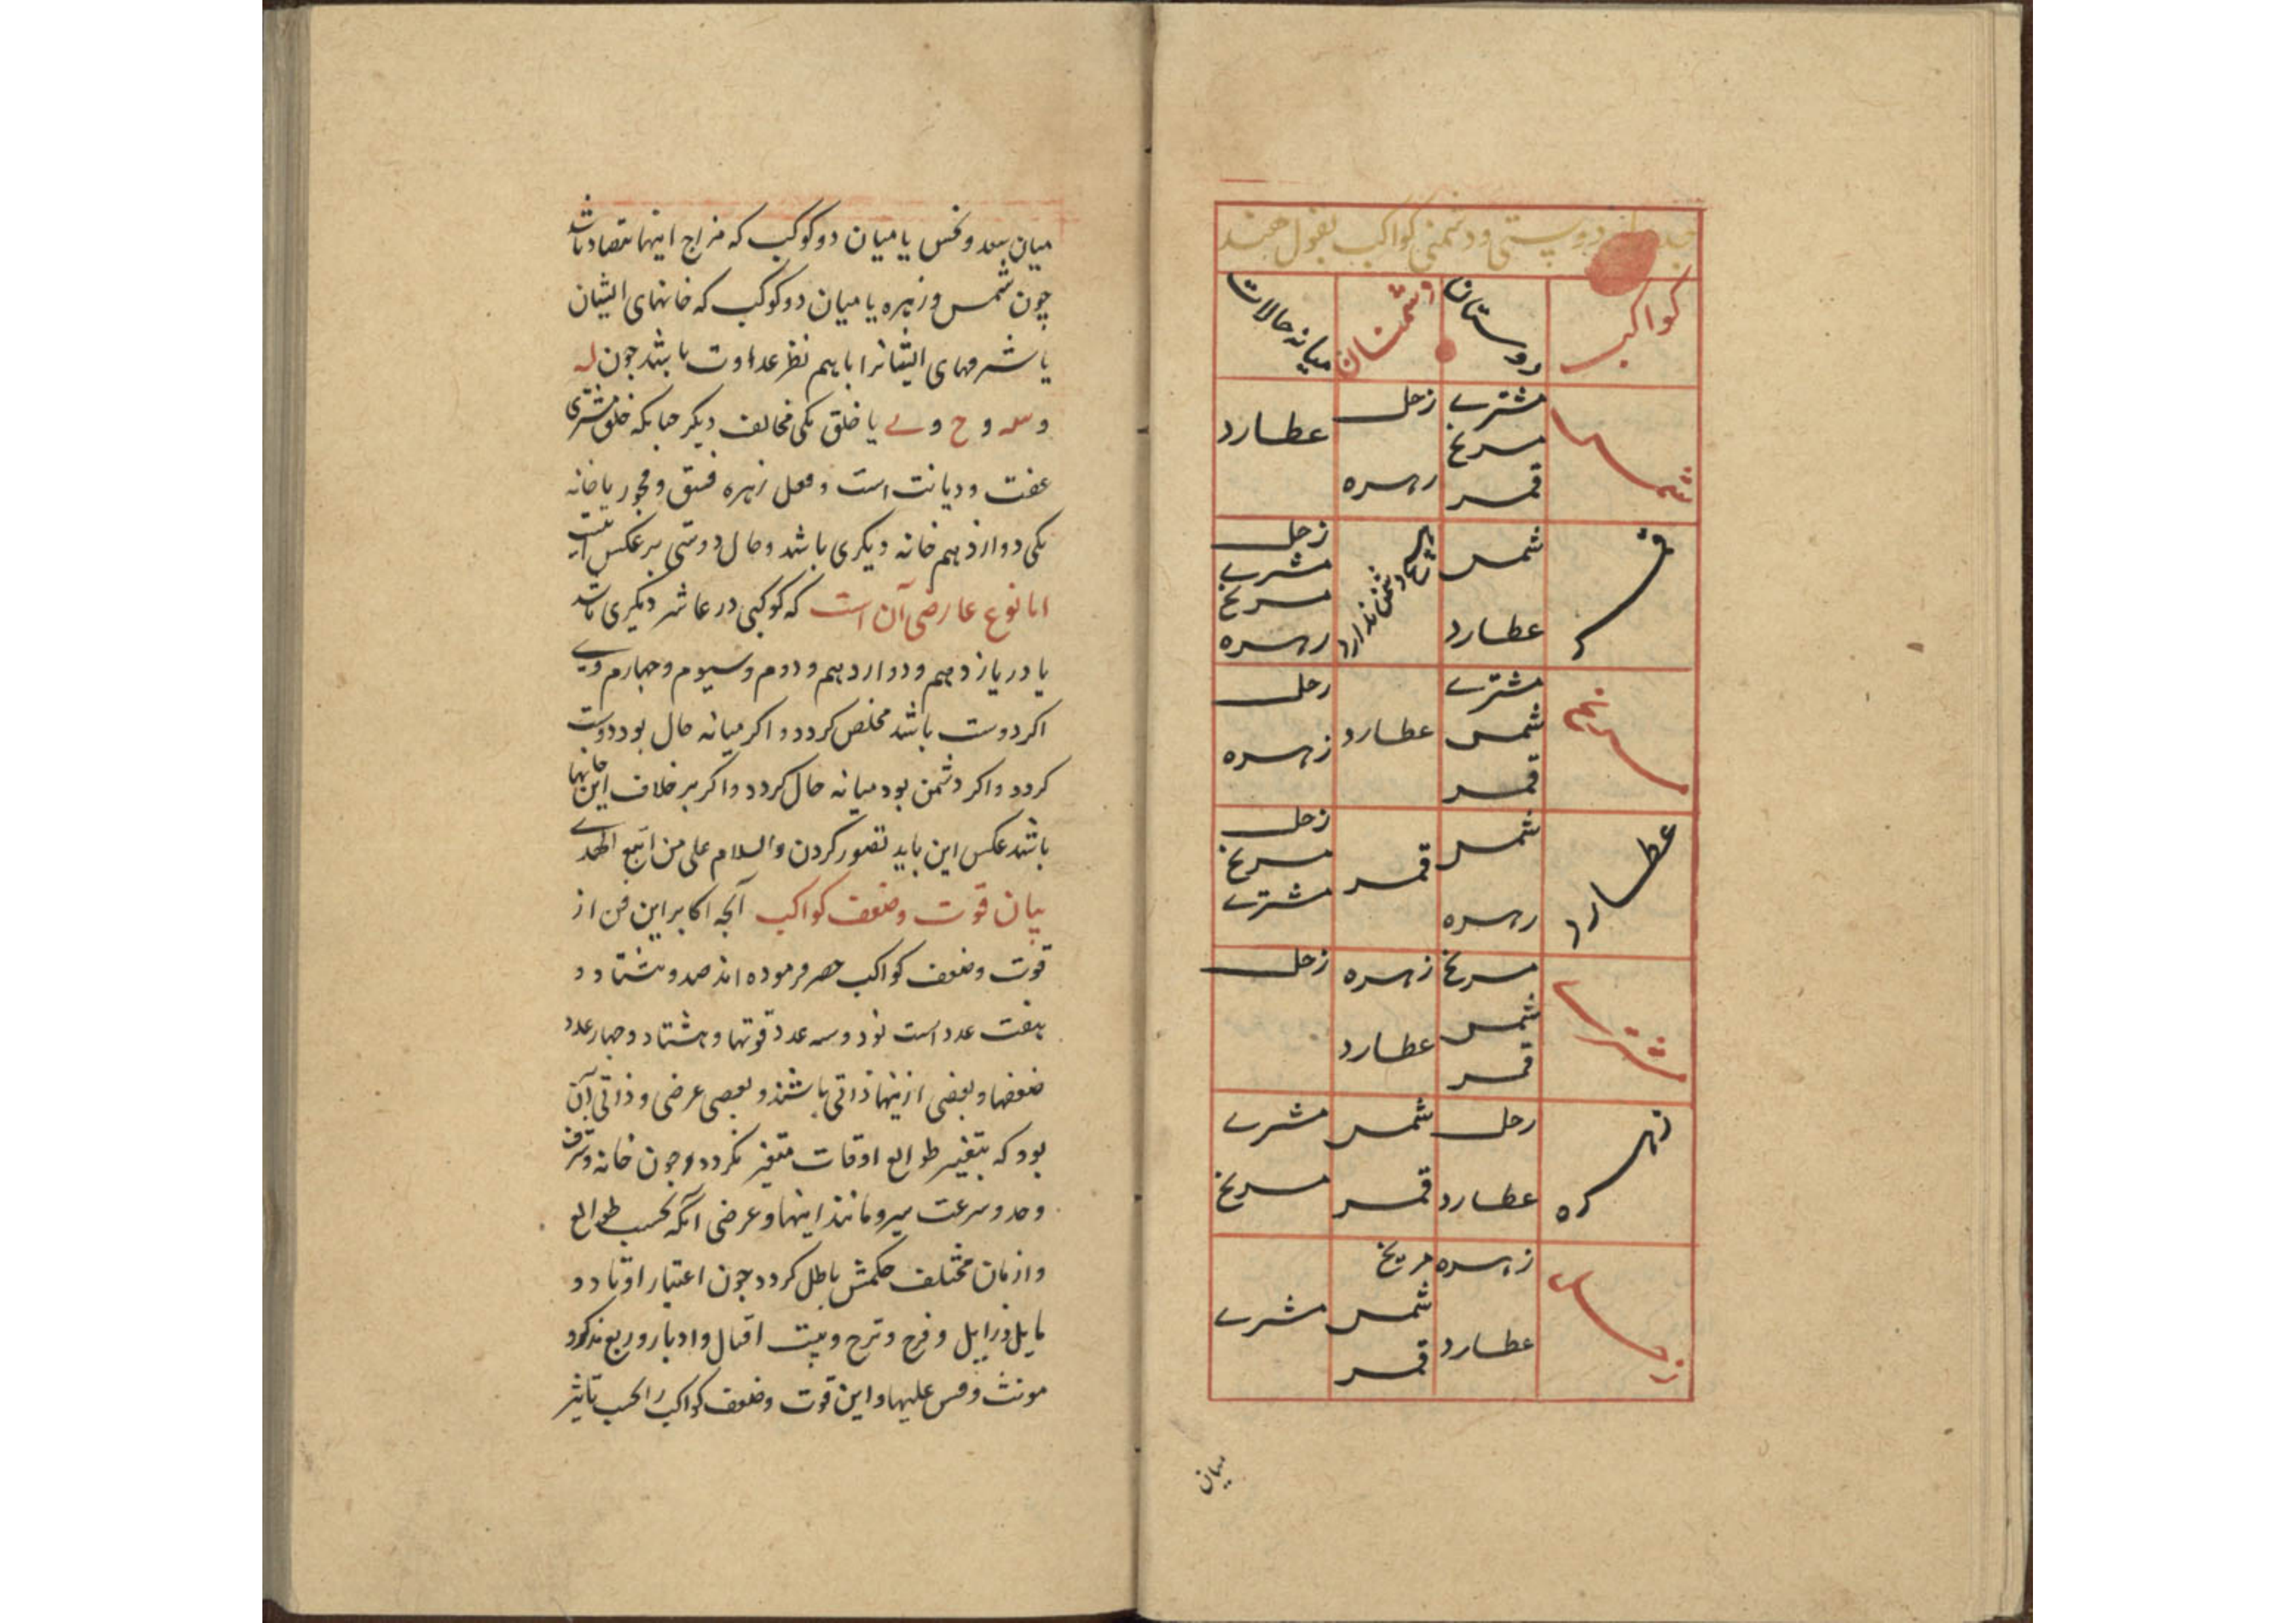 جدول دوستی و دشمنی کواکب بقول هند
کواکب دوستان دشمنان میانه حالات
شمس مشتری زحل عطارد
مریخ
قمر زهره
قمر شمس هیچ دشمن ندارد زحل
مشتری
مریخ
عطارد زهره
مریخ مشتری عطارد زحل
شمس زهره
قمر
عطارد شمس قمر زحل
مریخ
زهره مشتری
مشتری مریخ زهره زحل
شمس عطارد
قمر
زهره زحل شمس مشتری
عطارد قمر مریخ
زحل زهره مریخ مشتری
شمس
عطارد قمر
بیان
میان سعد و نحس یا میان دو کوکب که مزاج اینها متضاد باشد
چون شمس و زهره یا میان دو کوکب که خانهای ایشان
یا شرفهای ایشانرا با هم نظر عداوت باشد چون
و و ح و یا خلق یکی مخالف دیگر چنانکه خلق مشتری
عفت و دیانت است و فعل زهره فسق و فجور یا خانه
یکی دوازدهم خانه دیگری باشد و حال دوستی برعکس اینست
اما نوع عارضی آن است که کوکبی در عاشر دیگری باشد
یا در یازدهم و دوازدهم و دوم و سیوم و چهارم وی
اکر دوست باشد مخلص کردد و اکر میانه حال بود دوست
کردد و اکر دشمن بود میانه حال کردد و اکر برخلاف این خانها
باشد عکس این باید تصور کردن والسلام علی من اتبع الهدی
بیان قوت و ضعف کواکب آنچه اکابر این فن از
قوت و ضعف کواکب حصر فرموده اند صد و هشتاد و
هفت عدد است نود و سه عدد قوتها و هشتاد و چهار عدد
ضعفها و بعضی ازینها ذاتی باشند و بعضی عرضی و ذاتی آن
بود که بتغییر طوالع اوقات متغیر نکردد و چون خانه و شرف
وحد و سرعت سیر و مانند اینها و عرضی آنکه بحسب طوالع
و ازمان مختلف حکمش باطل کردد چون اعتبار اوتاد و
مایل و زایل و فرح و ترح و بیت اقبال و ادبار و ربع مذکور و
مونث و قس علیها و این قوت و ضعف کواکب را بحسب تاثیر